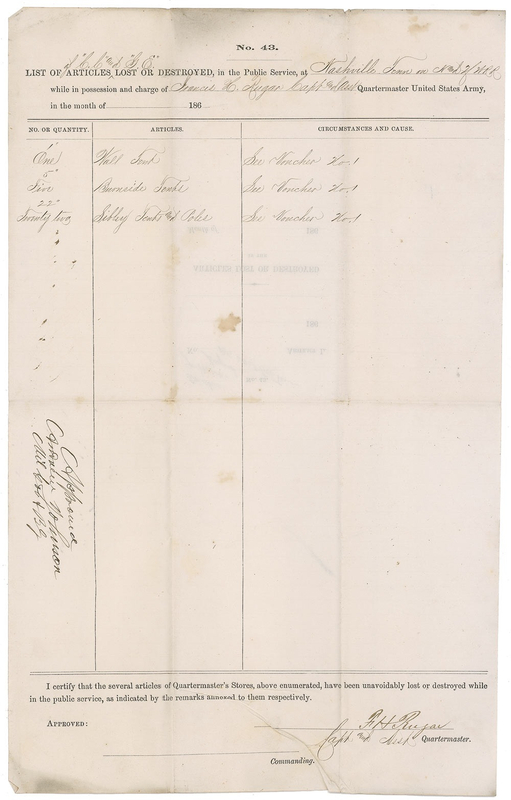 No. 43.
of "C. C. and "G. E."
LIST OF ARTICLES LOST OR DESTROYED, in the Public Service, at Nashville Tenn on
while in possession and charge of Francis H. Rugar Capt and Asst Quartermaster United States Army,
in the month of 186
NO. OR QUANTITY. ARTICLES. CIRCUMSTANCES AND CAUSE.
"1"
One Wall Tent See Voucher No. 1
"5"
Five Burnside Tents See Voucher No. 1
"22"
Twenty two Sibley Tents and Poles See Voucher No. 1
Approved
Andrew Johnson
Mil Gov
I certify that the several articles of Quartermaster's Stores, above enumerated, have been unavoidably lost or destroyed while
in the public service, as indicated by the remarks annexed to them respectively.
APPROVED:
F H Rugar
Capt and Asst Quartermaster.
Commanding.